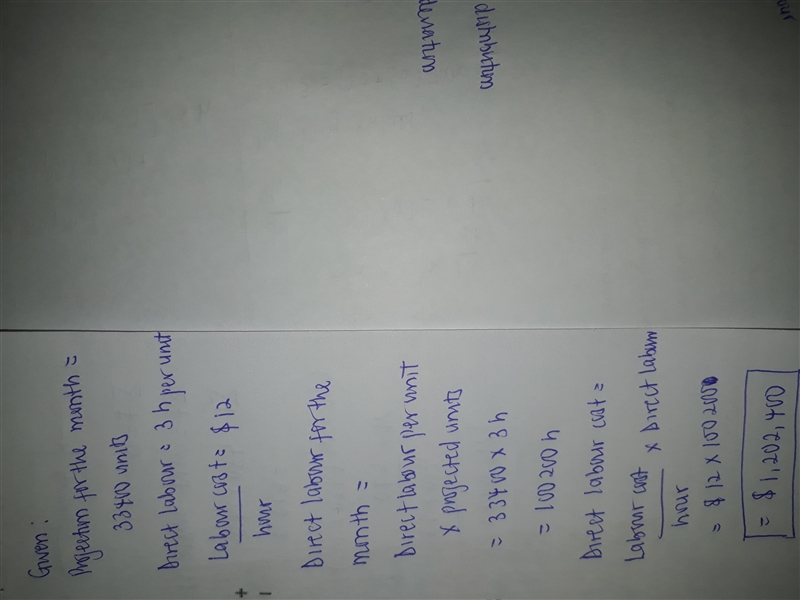 Given:
Projection for the month =
33400 units
Direct labour = 3 h per unit
Labour cost = $ 12
hour
+
-
Direct labour for the
month =
Direct labour per unit
x projected units
= 33400 x 3 h
= 100200 h
Direct labour cost =
Labour cost x Direct labour
hour
= $ 12 x 100200
= $ 1,202,400